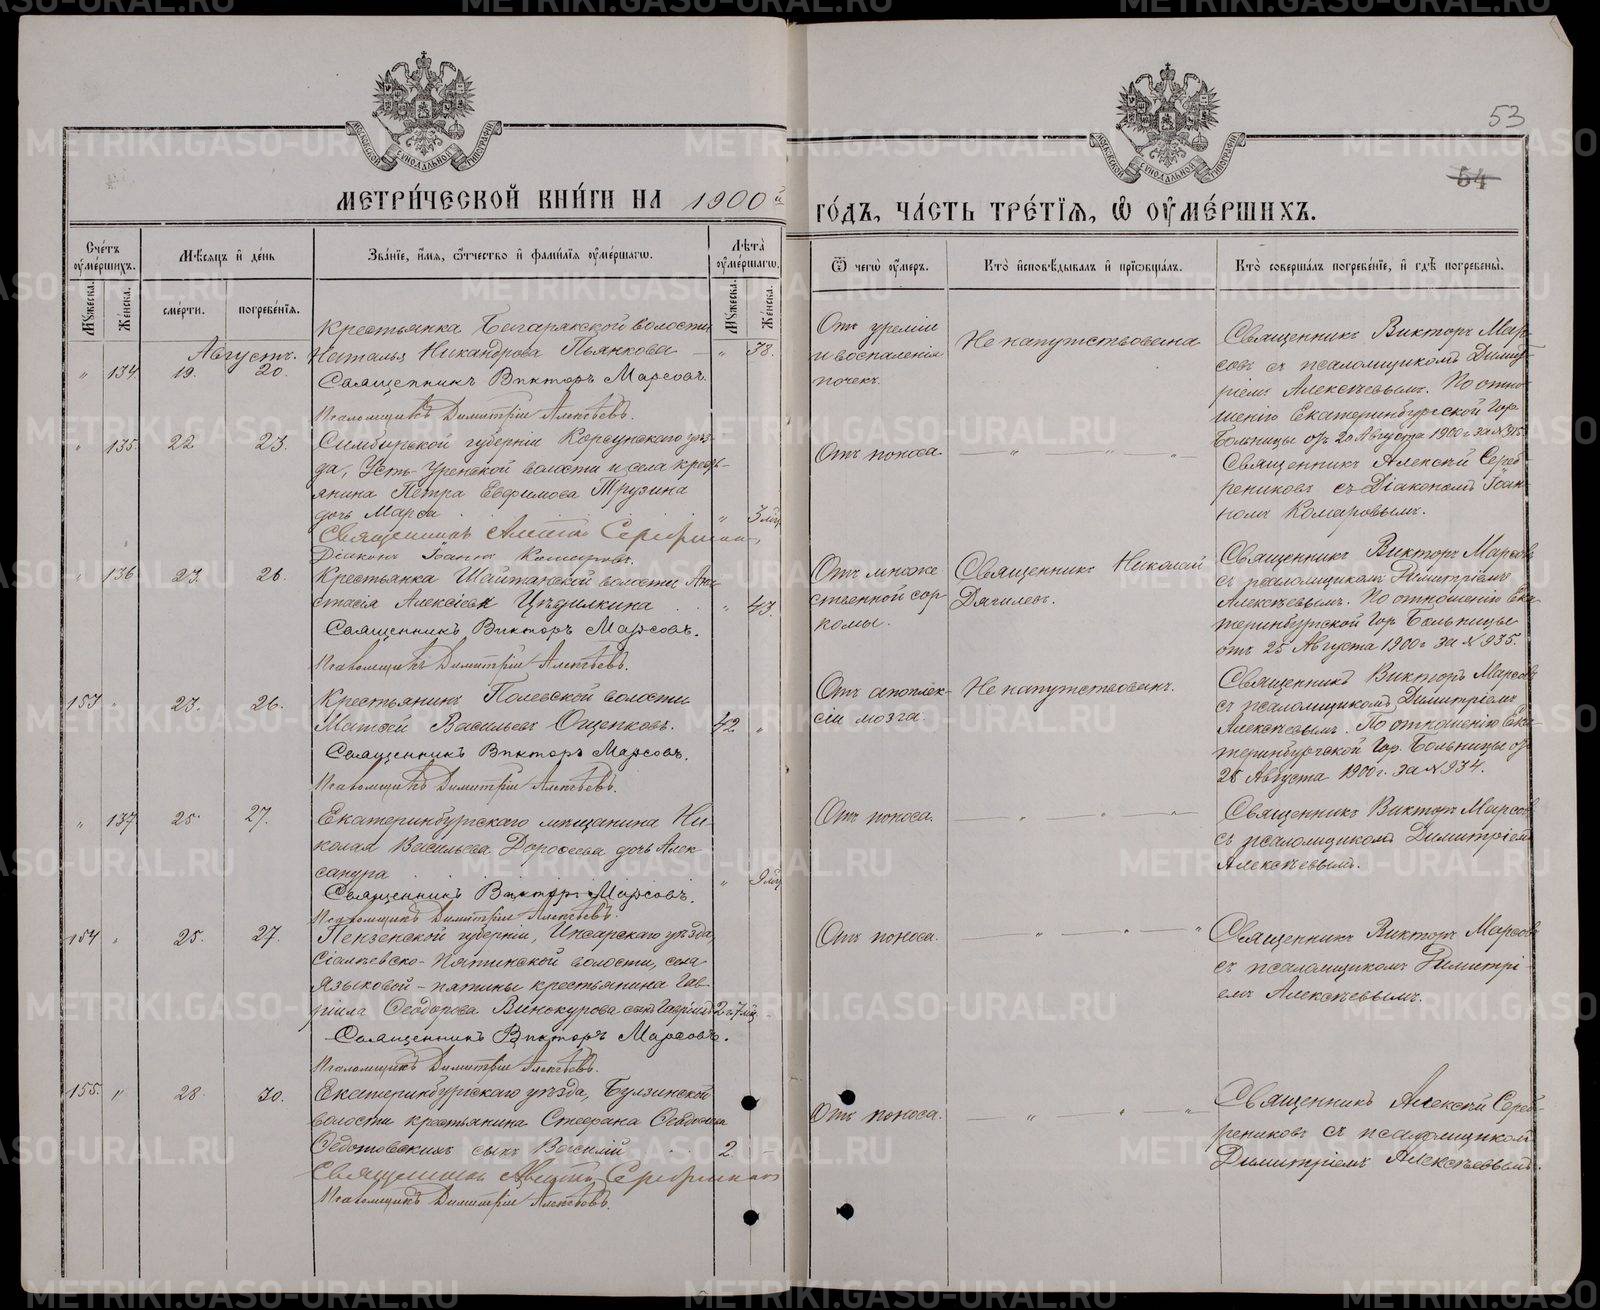 53
54
МЕТРИ́ЧЕСКОЙ КНИ́ГИ НА 1900й
ГО́ДЪ, ЧА́СТЬ ТРЕ́ТІѦ, Ѽ ОУМЕ́РШИХЪ.
Сче́тъ оумершихъ.
Мѣсяцъ и день
Зва́ніе, имя, отчество и фами́лія оумершагѡ.
Лѣта оумершагѡ.
Ѿ чегѡ оумеръ.
Кто исповѣдывалъ и пріѡбщалъ.
Кто совершалъ погребе́ніе, и гдѣ погребены.
Мужеска.
Женска.
смерти.
погребенія.
Мужеска.
Женска.
Августъ.
" 134 19. 20.
Крестьянка Багарякской волости
Наталья Никандрова Пьянкова — " 38.
Священникъ Викторъ Марсовъ.
Псаломщикъ Димитрій Алексѣевъ.
Отъ уреміи
и воспаленія
почекъ.
Не напутствована
Священникъ Викторъ Мар-
совъ съ псаломщикомъ Димит-
ріемъ Алексѣевымъ. По отно-
шенію Екатеринбургской Гор.
Больницы отъ 20 Августа 1900 г. за № 915.
" 135. 22. 23.
Симбирской губерніи Корсунскаго уѣз-
да, Усть-Уренской волости и села крест-
янина Петра Евфимова Трузина
дочь Марѳа . " 3 мѣс
Діаконъ Іоаннъ Комаровъ.
Отъ поноса.
— " — " — "
Священникъ Алексій Сереб-
рениковъ съ Діакономъ Іоан-
номъ Комаровымъ.
" 136 23. 26.
Крестьянка Шайтанской волости Ана-
стасія Алексіева Цѣдилкина . . " 43.
Священникъ Викторъ Марсовъ.
Псаломщикъ Димитрій Алексѣевъ.
Отъ множе
ственной сар-
комы.
Священникъ Николай
Дягилевъ.
Священникъ Викторъ Марсовъ
съ псаломщикомъ Димитріемъ
Алексѣевымъ. По отношенію Ека-
теринбургской Гор. Больницы
отъ 25 Августа 1900 г. за № 935.
153 " 23. 26.
Крестьянинъ Полевской волости
Матѳей Васильевъ Ощепковъ. 42 "
Священникъ Викторъ Марсовъ.
Псаломщикъ Димитрій Алексѣевъ.
Отъ апоплек-
сіи мозга.
Не напутствованъ.
Священникъ Викторъ Марсовъ
съ псаломщикомъ Димитріемъ
Алексѣевымъ. По отношенію Ека-
теринбургской Гор. Больницы отъ
25 Августа 1900 г. за № 934.
" 137 25. 27.
Екатеринбургскаго мѣщанина Ни-
колая Васильева Дорофеева дочь Алек-
сандра . . " 9 мѣс
Священникъ Викторъ Марсовъ.
Псаломщикъ Димитрій Алексѣевъ.
Отъ поноса.
— " — " — "
Священникъ Викторъ Марсовъ
съ псаломщикомъ Димитріемъ
Алексѣевымъ.
154 " 25. 27.
Пензенской губерніи, Инсарскаго уѣзда,
Сіалѣевско-Пятинской волости, села
Языковой-пятины крестьянина Гав-
ріила Ѳеодорова Винокурова сынъ Гавріилъ 2 г. 7 мѣс.
Священникъ Викторъ Марсовъ.
Псаломщикъ Димитрій Алексѣевъ.
Отъ поноса.
— " — " — "
Священникъ Викторъ Марсовъ
съ псаломщикомъ Димитрі-
емъ Алексѣевымъ.
155. " 28. 30.
Екатеринбургскаго уѣзда, Булзинской
волости крестьянина Стефана Ѳеодорова
Ѳедотовскихъ сынъ Василій . . 2
Псаломщикъ Димитрій Алексѣевъ.
Отъ поноса.
— " — " — "
Священникъ Алексій Сереб-
рениковъ съ псаломщикомъ
Димитріемъ Алексѣевымъ.
METRIKI.GASO-URAL.RU